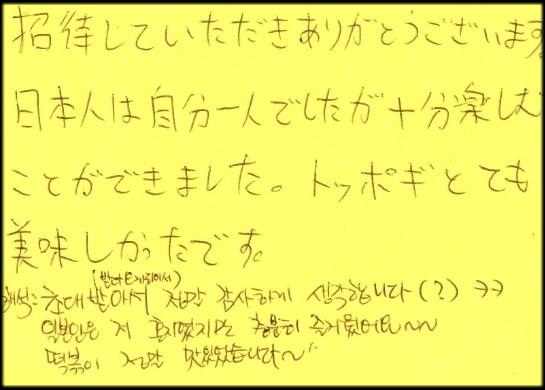 招待していただきありがとうございます
日本人は自分一人でしたが十分楽しむ
ことができました。トッポギとても
美味しかったです。
해석: 초대 받아서 정말 감사하게 생각합니다(?) ㅋㅋ
일본인은 저 혼자였지만 충분히 즐거웠어요~~
떡볶이 정말 맛있었습니다~